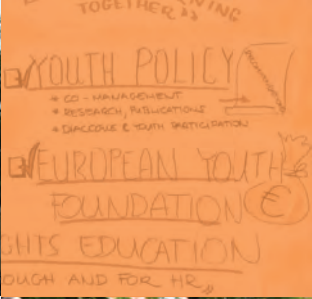 TOGETHER"
YOUTH POLICY
* CO-MANAGEMENT
* RESEARCH, PUBLICATIONS
* DIALOGUE & YOUTH PARTICIPATION
EUROPEAN YOUTH
FOUNDATION €
GHTS EDUCATION
OUGH AND FOR HR"